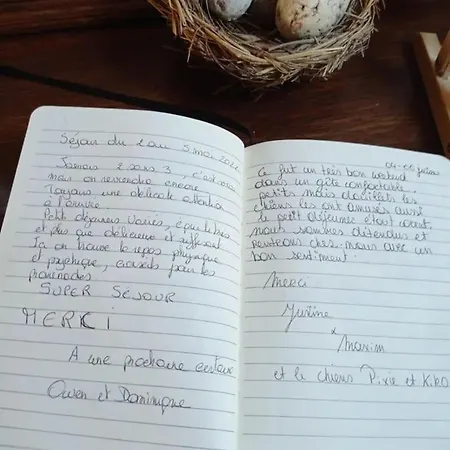 Séjour du 2 au 5 mai
Jamais 2 sans 3, c'est
mais on reviendra encore
Toujours une délicate attention
à l'arrivée
Petit déjeuner variés,
et plus que délicieux et suffisant
Ici on trouve le repos physique
et psychique, conseils pour les
promenades
SUPER SÉJOUR
MERCI
A une prochaine
Owen et Dominique
04-06 juin
Ce fut un très bon weekend
dans un gîte confortable.
petits mais douillet les
chiens ce sont amusés aussi
le petit déjeuner était
nous sommes détendus et
rentrons chez-nous avec un
bon sentiment.
Merci
Justine
x
Maxim
et le chiens Pixie et Kiko